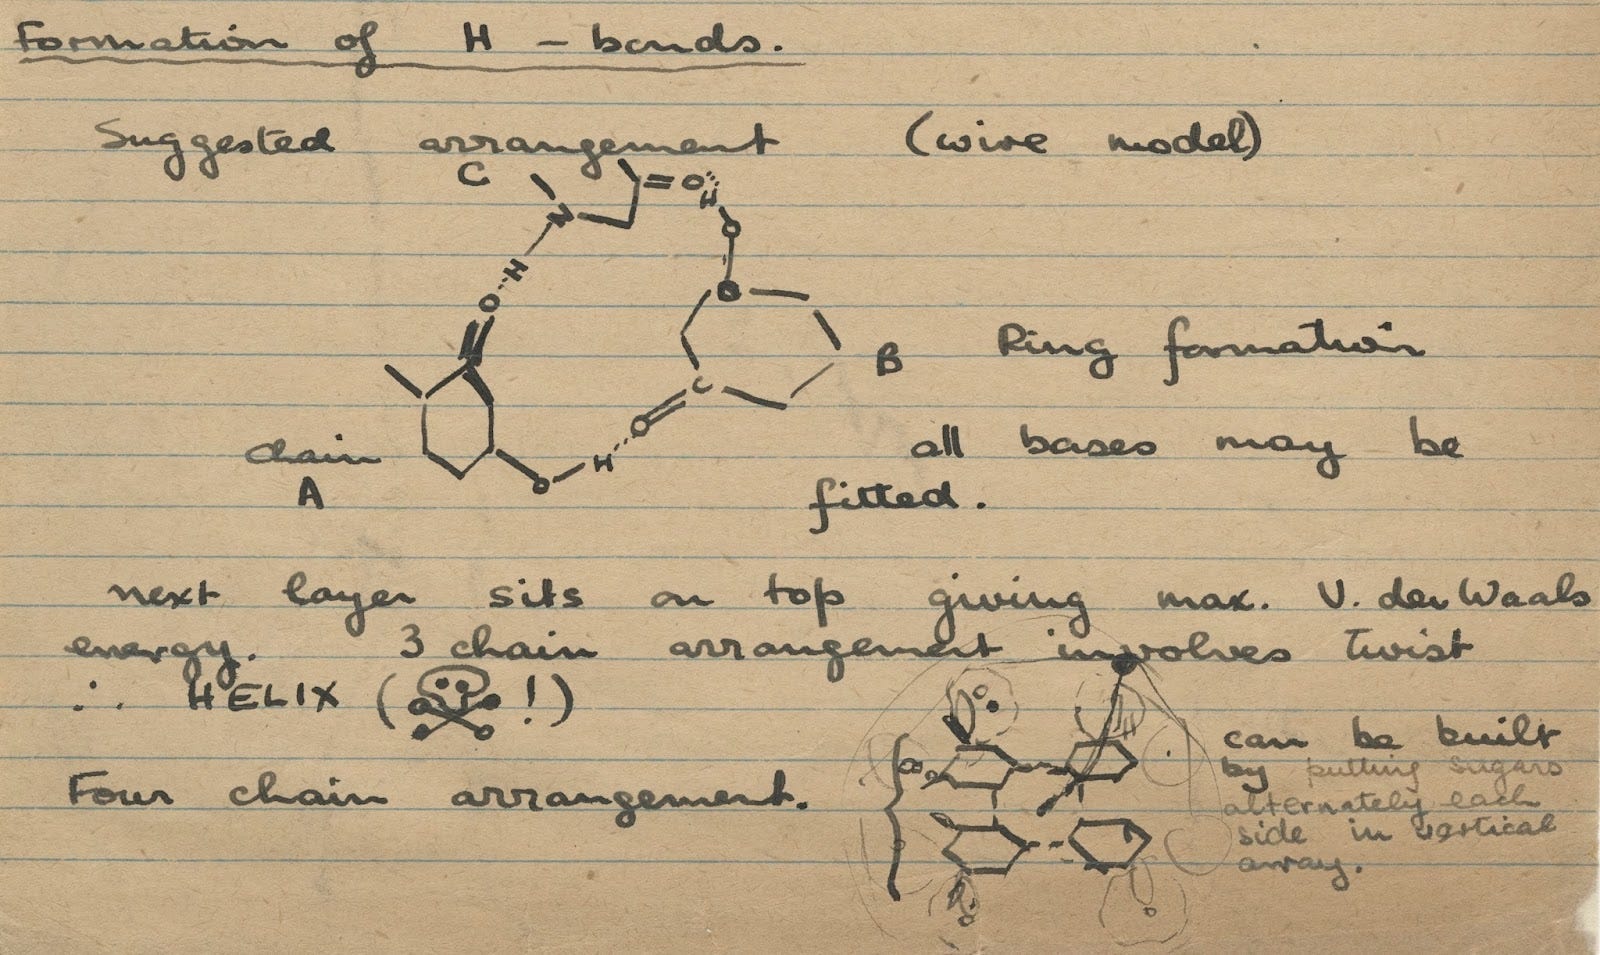 Formation of H - bonds.
Suggested arrangement (wire model)
C
=O
H
N
O
H
O
O
B
Ring formation
C
O
all bases may be
chain
H
A
O
fitted.
next layer sits on top giving max. V. der Waals
energy. 3 chain arrangement involves twist
∴ HELIX ( !)
can be built
Four chain arrangement.
by putting sugars
alternately each
side in vertical
array.